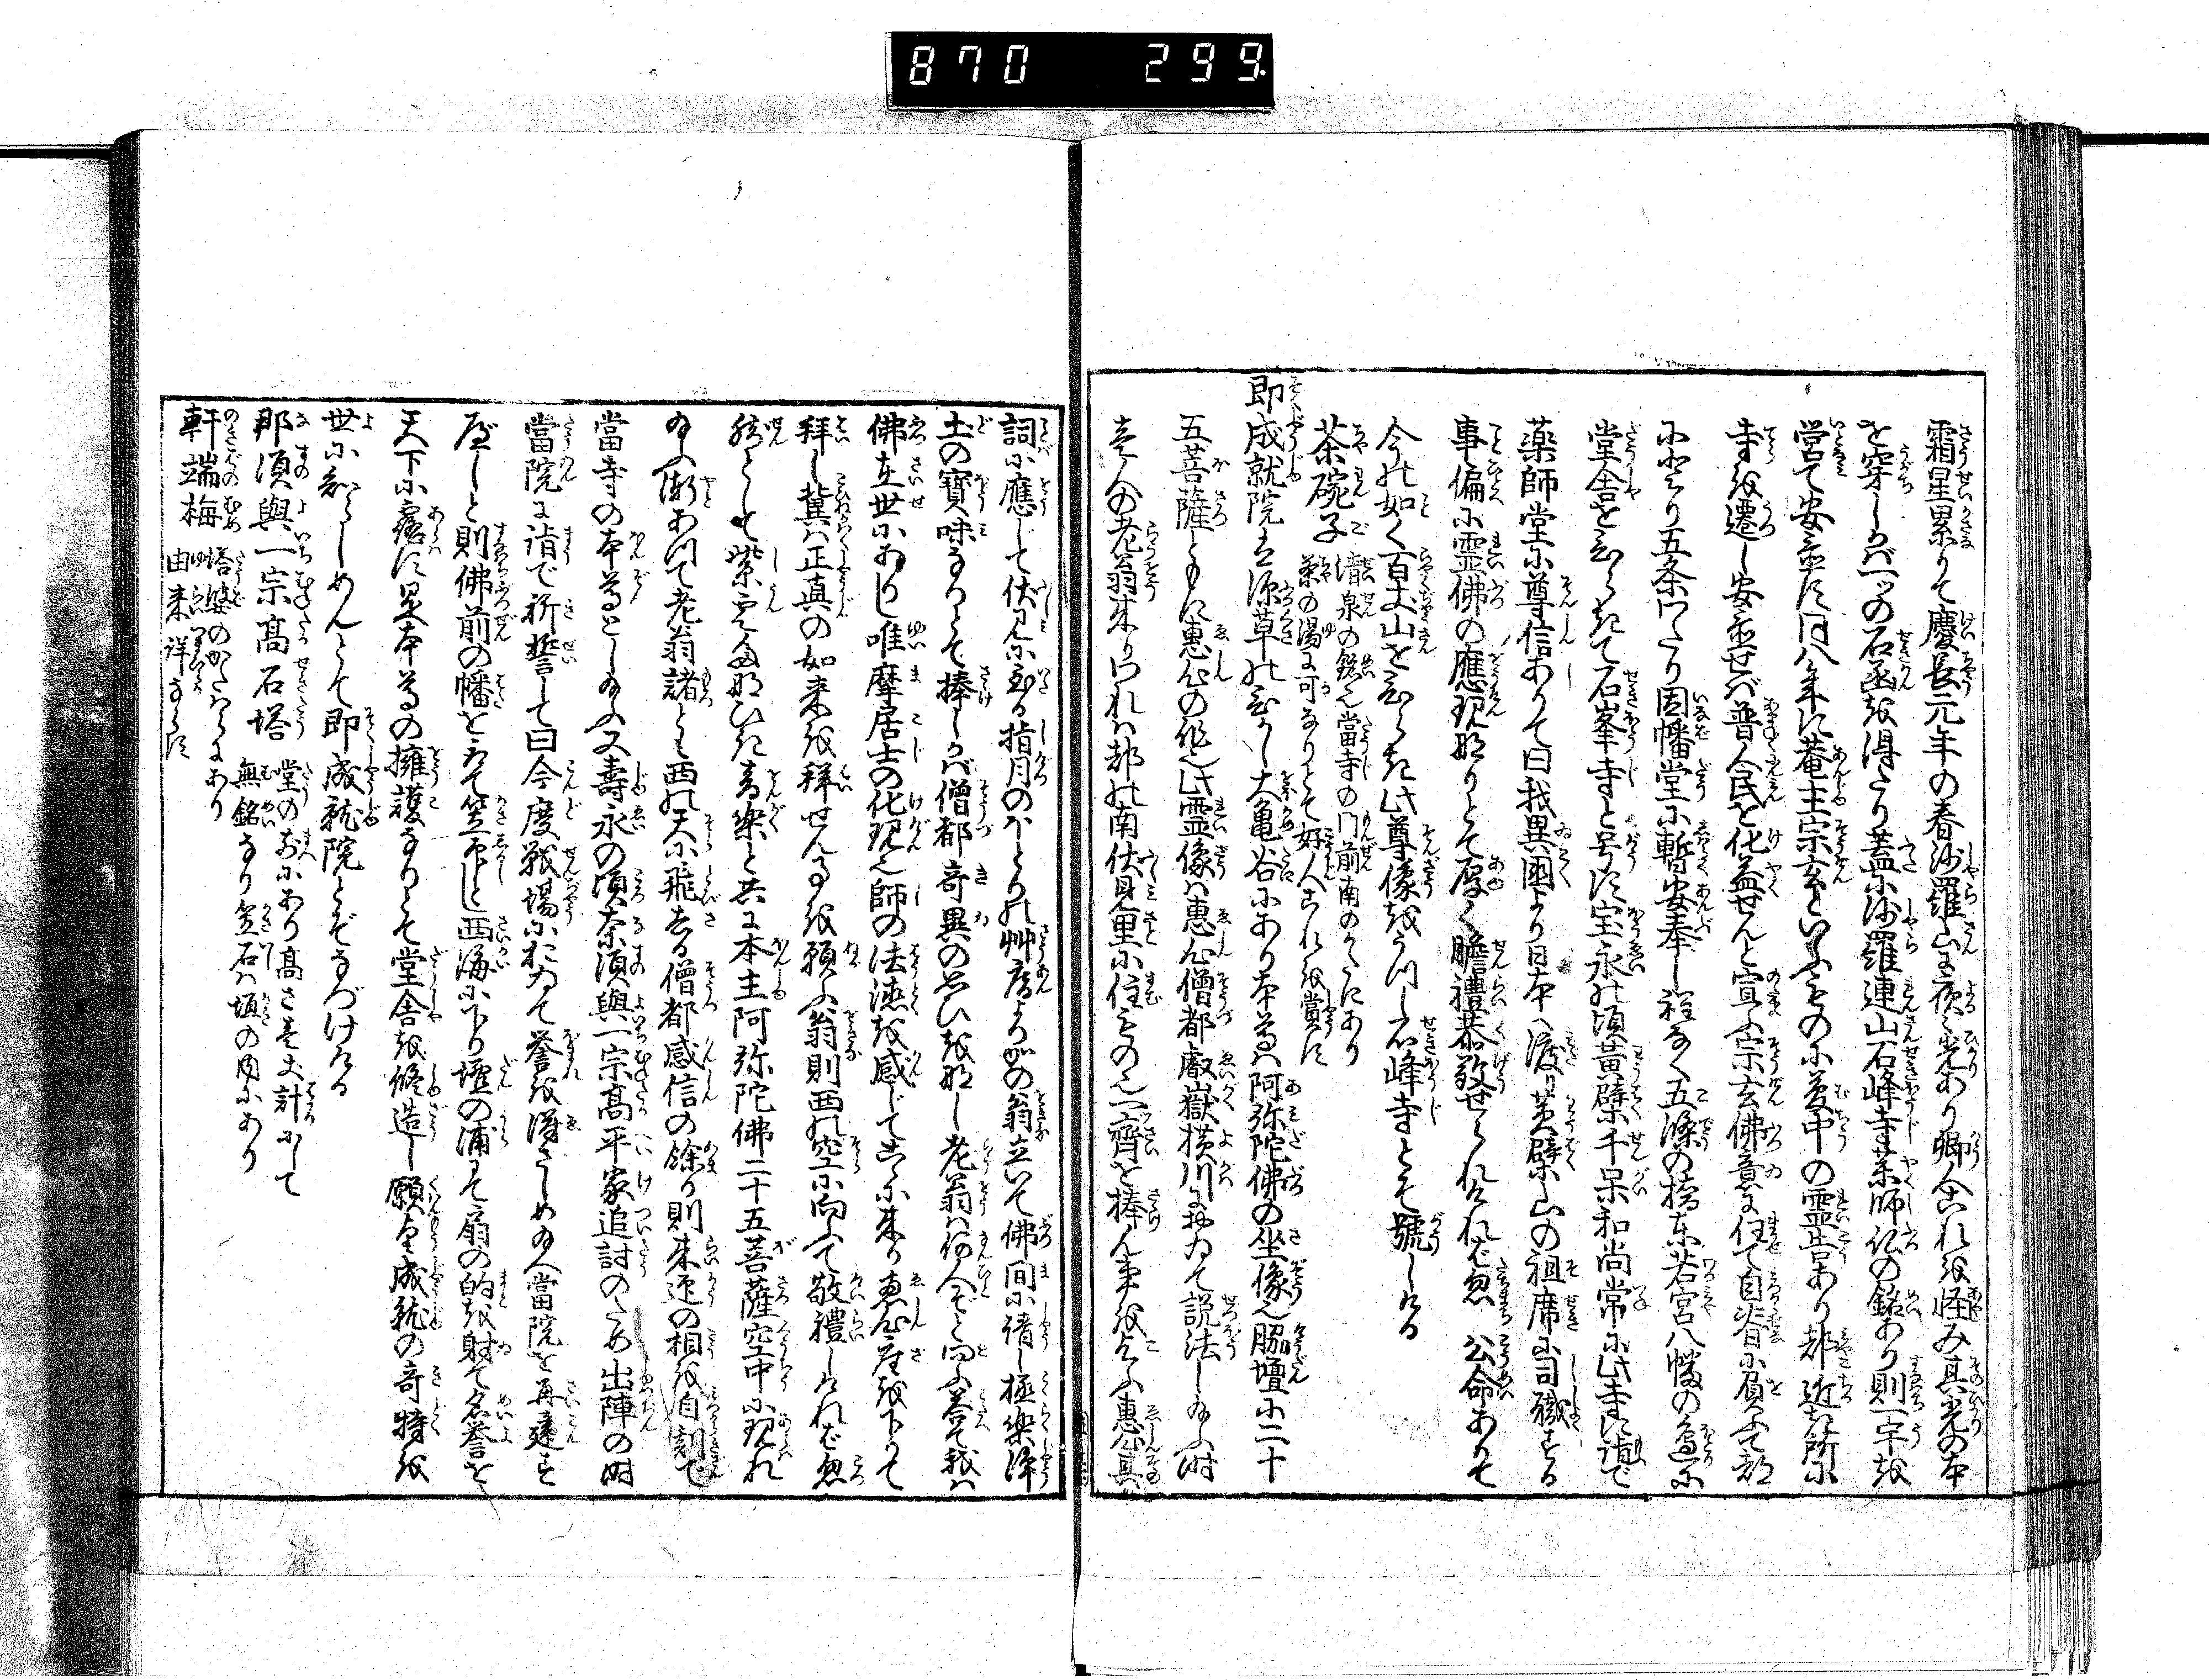 870 299.
霜星累りて慶長元年の春沙羅山に夜々光あり郷人これを怪み其光の本
を穿しかバ一ツの石函を得たり蓋に沙羅連山石峰寺薬師仏の銘あり則一宇を
営て安置す同八年に菴主宗玄といふものに夢中の霊告あり都近き所に
寺を遷し安置せバ普人民を化益せんと宣ふ宗玄佛意に任て自背に負ふて都
に登り五条わたり因幡堂に暫安奉し程なく五條の橋東若宮八幡の邊に
堂舎をひらきて石峯寺と号す宝永の頃黄檗千呆和尚常に此寺に詣で
薬師堂に尊信ありて曰我異國より日本へ渡り黄檗山の祖席に司職する
事偏に霊佛の應現なりとて厚く瞻禮恭敬せられけれバ忽 公命ありて
今の如く百丈山をひらき此尊像をうつし石峰寺とぞ號しける
茶碗子 瀧泉の銘也當寺の門前南のかたにあり
茶の湯に可なりとて好人これを賞す
即成就院ハ深草の東大亀谷にあり本尊ハ阿弥陀佛の坐像也脇壇に二十
五菩薩ともに惠心の作也此霊像ハ惠心僧都叡嶽横川にゐて説法し給ふ時
壱人の老翁来りわれハ都の南伏見里に住もの也一齊を捧ん事を乞ふ惠心其
詞に應じて伏見に到る指月のほとりの艸庵よりかの翁立いで佛間に請し極楽浄
土の寶味なりとて捧しかバ僧都奇異の思ひをなし老翁ハ何人ぞと問ふ答て我ハ
佛在世にありし唯摩居士の化現也師の法徳を感じてこゝに来り惠心座を下りて
拜し冀ハ正真の如来を拜せん事を願ふ翁則西の空に向ふて敬禮しけれバ忽
然として紫雲たなひき音楽と共に本主阿弥陀佛二十五菩薩空中に現れ
給ふ漸あつて老翁諸とも西の天に飛去る僧都感信の餘り則来迎の相を自刻で
當寺の本尊とし給ふ又壽永の頃奈須與一宗高平家追討のため出陣の時
當院に詣で祈誓して曰今度戦場におゐて誉を得さしめ給へ當院を再建す
べしと則佛前の幡をとりて笠印とし西海に下り壇の浦にて扇の的を射て名誉を
天下に露す是本尊の擁護なりとて堂舎を修造し願望成就の奇特を
世に知らしめんとて即成就院とぞなづけける
那須與一宗高石塔 堂のまへにあり高さ壱丈計にして
無銘なり笠石ハ垣の内にあり
軒端梅 塔婆のかたハらにあり
由来詳ならず